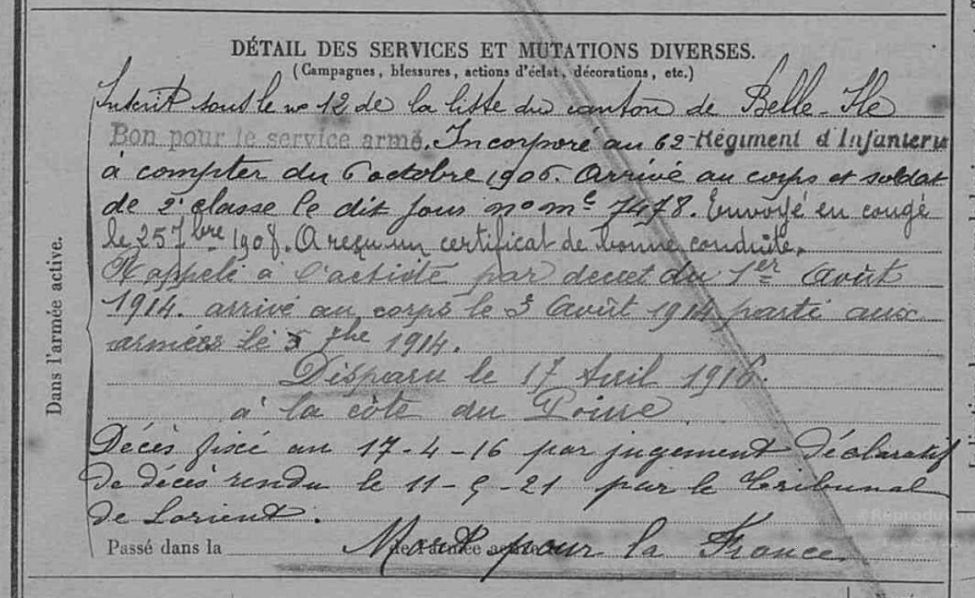 DÉTAIL DES SERVICES ET MUTATIONS DIVERSES.
(Campagnes, blessures, actions d'éclat, décorations, etc.)
Inscrit sous le no 12 de la liste du canton de Belle-Ile
Bon pour le service armé. Incorporé au 62 Régiment d'Infanterie
à compter du 6 octobre 1906. Arrivé au corps et soldat
de 2e classe le dit jour no mle 7478. Envoyé en congé
le 25 7bre 1908. A reçu un certificat de bonne conduite.
Rappelé à l'activité par decret du 1er Août
1914. arrivé au corps le 3 Août 1914 parti aux
armées le 5 7bre 1914.
Disparu le 17 Avril 1916.
à la côte du Poivre
Décès fixé au 17-4-16 par jugement déclaratif
de décès rendu le 11-5-21 par le Tribunal
de Lorient.
Passé dans la de l'armée
Mort pour la France
Dans l'armée active.